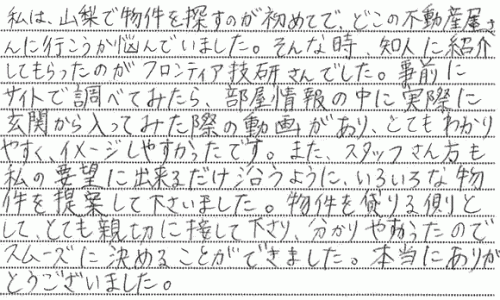 私は、山梨で物件を探すのが初めてで、どこの不動産屋さ
んに行こうか悩んでいました。そんな時、知人に紹介
してもらったのがフロンティア技研さんでした。事前に
サイトで調べてみたら、部屋情報の中に実際に
玄関から入ってみた際の動画があり、とてもわかり
やすく、イメージしやすかったです。また、スタッフさん方も
私の要望に出来るだけ沿うように、いろいろな物
件を提案して下さいました。物件を借りる側と
して、とても親切に接して下さり、分かりやすかったので
スムーズに決めることができました。本当にありが
とうございました。